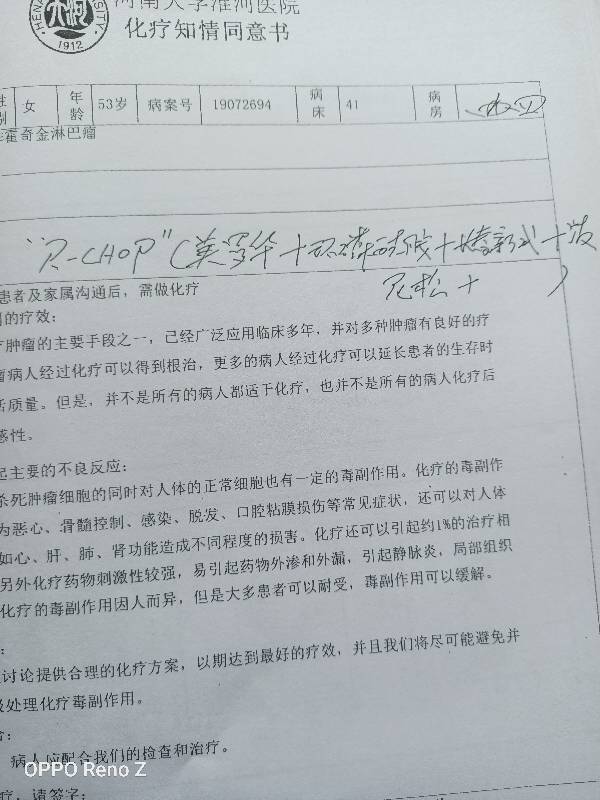 河南大学淮河医院
HENA
SITY
1912
化疗知情同意书
性别 女 年龄 53岁 病案号 19072694 病床 41 病房
霍奇金淋巴瘤
"R-CHOP" (美罗华+环磷酰胺+
尼松+ )
患者及家属沟通后，需做化疗
的疗效：
疗肿瘤的主要手段之一，已经广泛应用临床多年，并对多种肿瘤有良好的疗
瘤病人经过化疗可以得到根治，更多的病人经过化疗可以延长患者的生存时
活质量。但是，并不是所有的病人都适于化疗，也并不是所有的病人化疗后
感性。
起主要的不良反应：
杀死肿瘤细胞的同时对人体的正常细胞也有一定的毒副作用。化疗的毒副作
为恶心、骨髓控制、感染、脱发、口腔粘膜损伤等常见症状，还可以对人体
如心、肝、肺、肾功能造成不同程度的损害。化疗还可以引起约1%的治疗相
另外化疗药物刺激性较强，易引起药物外渗和外漏，引起静脉炎，局部组织
化疗的毒副作用因人而异，但是大多患者可以耐受，毒副作用可以缓解。
：
讨论提供合理的化疗方案，以期达到最好的疗效，并且我们将尽可能避免并
极处理化疗毒副作用。
：
病人应配合我们的检查和治疗。
疗，请签字：
OPPO Reno Z